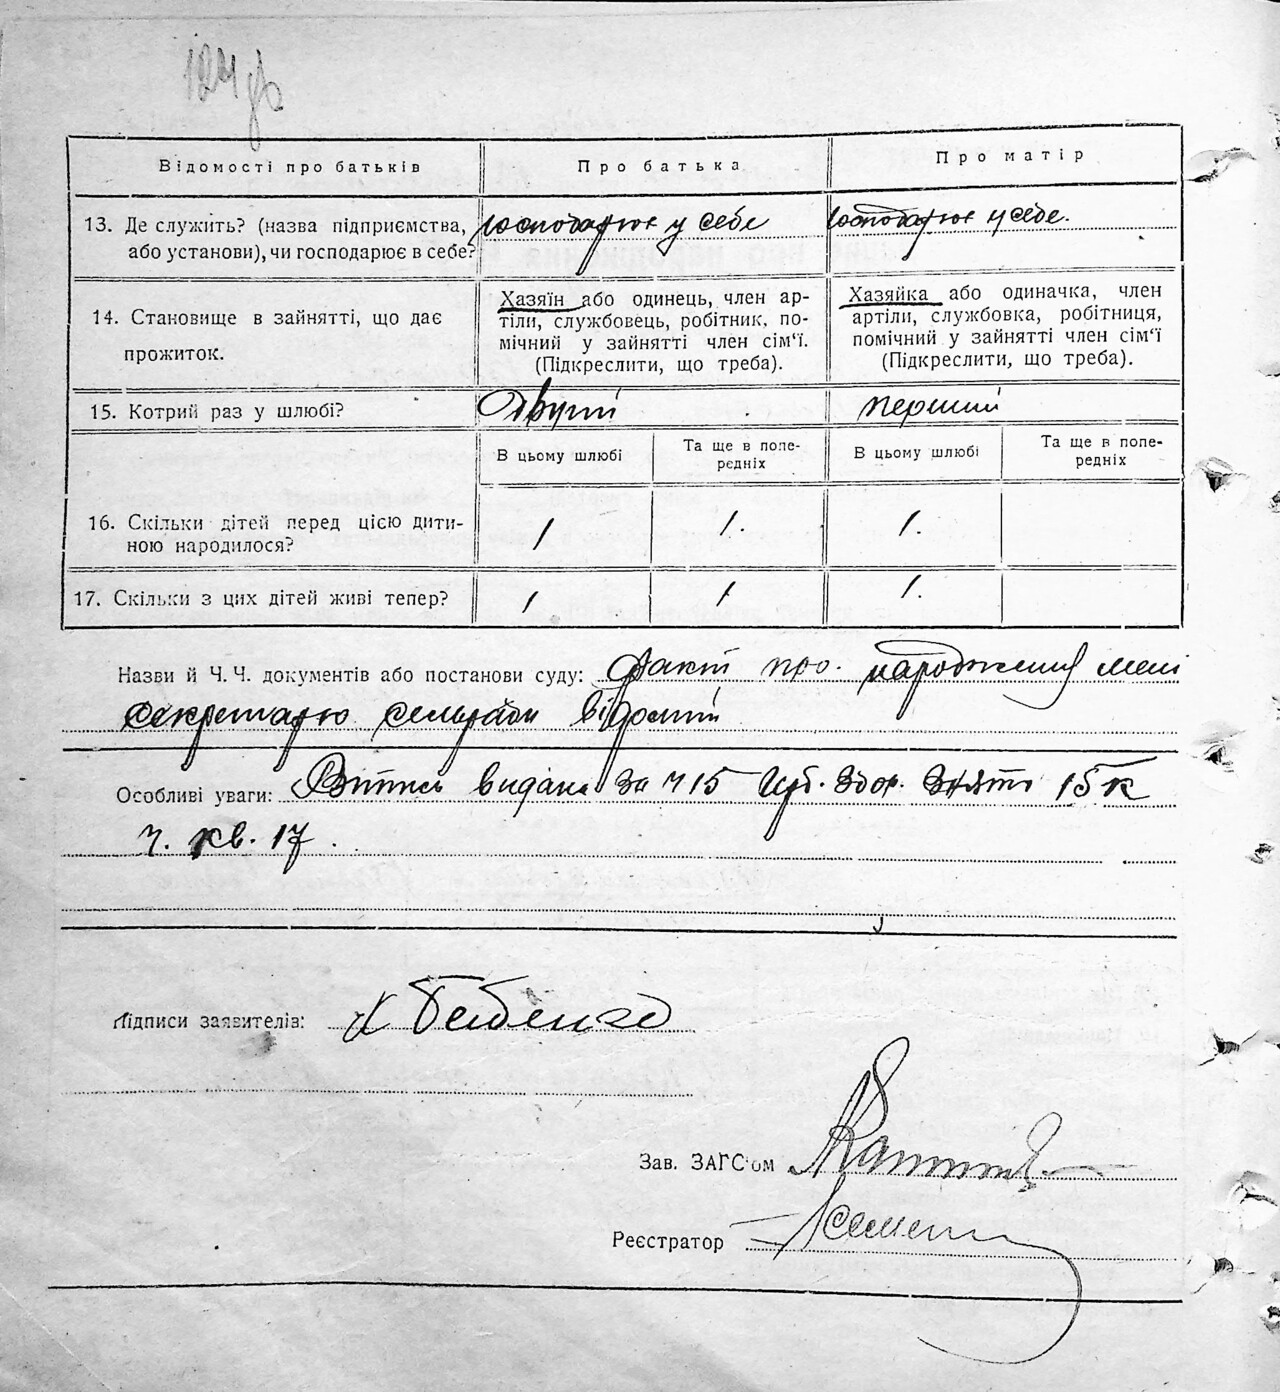 Відомості про батьків
Про батька
Про матір
13. Де служить? (назва підприємства,
або установи), чи господарює в себе?
господарює у себе
господарює у себе.
14. Становище в зайнятті, що дає
прожиток.
Хазяїн або одинець, член ар-
тілі, службовець, робітник, по-
мічний у зайнятті член сім'ї.
(Підкреслити, що треба).
Хазяйка або одиначка, член
артіли, службовка, робітниця,
помічний у зайнятті член сім'ї
(Підкреслити, що треба).
15. Котрий раз у шлюбі?
другий
перший
В цьому шлюбі
Та ще в попе-
редніх
В цьому шлюбі
Та ще в попе-
редніх
16. Скільки дітей перед цією дити-
ною народилося?
1
1.
1.
17. Скільки з цих дітей живі тепер?
1
1
1.
Назви й Ч. Ч. документів або постанови суду: факт про народження мені
секретарю сельради відомий
Особливі уваги: Витись видана за ч 15 збор. знято 15 к
ч. кв. 17.
Підписи заявителів:
Зав. ЗАГС'ом
Реєстратор